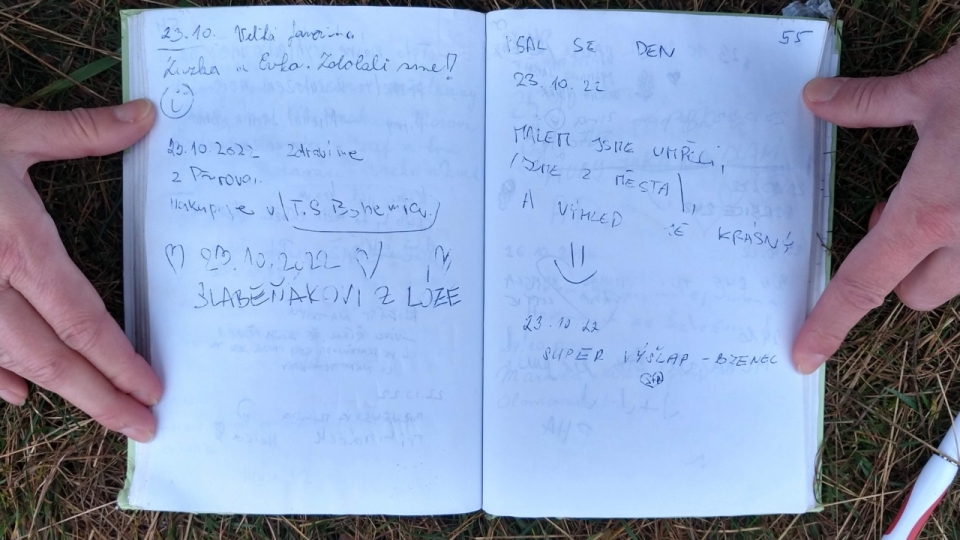 23.10. Velká Javořina
Zuzka a Evka. Zdolali sme!!
23.10.2022 Zdravíme
z Přerova,
v (T.S. Bohemia.)
23.10.2022
SLABĚŇÁKOVI Z LÚZE
55
PSAL SE DEN
23 10. 22
MÁLEM JSME UMŘELI,
(JSME Z MĚSTA),
A VÝHLED JE KRÁSNÝ
23.10 22
SUPER VÝŠLAP - BZENEC